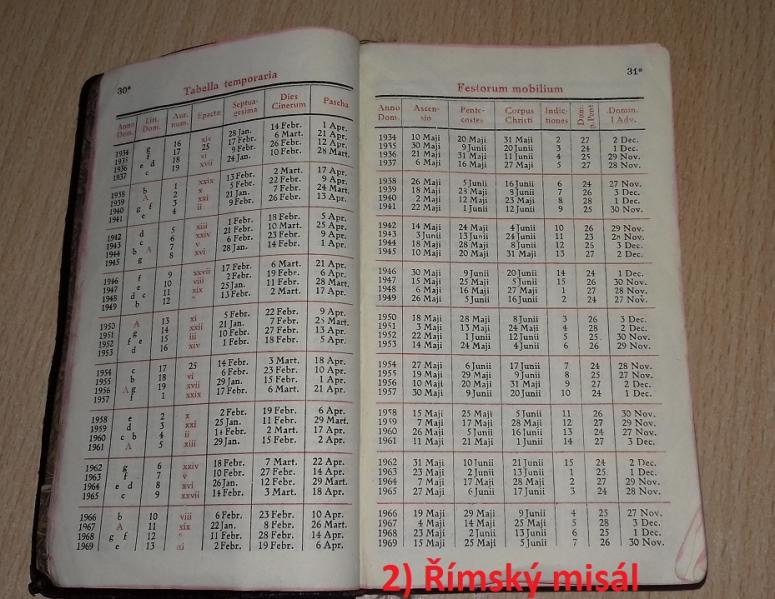 30*
Tabella temporaria
Anno Dom. Litt. Dom. Aur. num. Epactæ Septuagesima Dies Cinerum Pascha
1934 g 16 xiv 28 Jan. 14 Febr. 1 Apr.
1935 f 17 25 17 Febr. 6 Mart. 21 Apr.
1936 e d 18 vi 9 Febr. 26 Febr. 12 Apr.
1937 c 19 xvii 24 Jan. 10 Febr. 28 Mart.
1938 b 1 xxix 13 Febr. 2 Mart. 17 Apr.
1939 A 2 x 5 Febr. 22 Febr. 9 Apr.
1940 g f 3 xxi 21 Jan. 7 Febr. 24 Mart.
1941 e 4 ii 9 Febr. 26 Febr. 13 Apr.
1942 d 5 xiii 1 Febr. 18 Febr. 5 Apr.
1943 c 6 xxiv 21 Febr. 10 Mart. 25 Apr.
1944 b A 7 v 6 Febr. 23 Febr. 9 Apr.
1945 g 8 28 Jan. 14 Febr. 1 Apr.
1946 f 9 xxvii 17 Febr. 6 Mart. 21 Apr.
1947 e 10 viii 2 Febr. 19 Febr. 6 Apr.
1948 d c 11 xix 25 Jan. 11 Febr. 28 Mart.
1949 b 12 * 13 Febr. 2 Mart. 17 Apr.
1950 A 13 xi 5 Febr. 22 Febr. 9 Apr.
1951 g 14 xxii 21 Jan. 7 Febr. 25 Mart.
1952 f e 15 iii 10 Febr. 27 Febr. 13 Apr.
1953 d 16 xiv 1 Febr. 18 Febr. 5 Apr.
1954 c 17 25 14 Febr. 3 Mart. 18 Apr.
1955 b 18 vi 6 Febr. 23 Febr. 10 Apr.
1956 A g 19 xvii 29 Jan. 15 Febr. 1 Apr.
1957 f 1 xxix 17 Febr. 6 Mart. 21 Apr.
1958 e 2 x 2 Febr. 19 Febr. 6 Apr.
1959 d 3 xxi 25 Jan. 11 Febr. 29 Mart.
1960 c b 4 ii 14 Febr. 2 Mart. 17 Apr.
1961 A 5 xiii 29 Jan. 15 Febr. 2 Apr.
1962 g 6 xxiv 18 Febr. 7 Mart. 22 Apr.
1963 f 7 v 10 Febr. 27 Febr. 14 Apr.
1964 e d 8 xvi 26 Jan. 12 Febr. 29 Mart.
1965 c 9 xxvii 14 Febr. 3 Mart. 18 Apr.
1966 b 10 viii 6 Febr. 23 Febr. 10 Apr.
1967 A 11 xix 22 Jan. 8 Febr. 26 Mart.
1968 g f 12 * 11 Febr. 28 Febr. 14 Apr.
1969 e 13 xi 2 Febr. 19 Febr. 6 Apr.
31*
Festorum mobilium
Anno Dom. Ascensio Pentecostes Corpus Christi Indictiones Dom. p. Pent. Domin. I Adv.
1934 10 Maji 20 Maji 31 Maji 2 27 2 Dec.
1935 30 Maji 9 Junii 20 Junii 3 24 1 Dec.
1936 21 Maji 31 Maji 11 Junii 4 25 29 Nov.
1937 6 Maji 16 Maji 27 Maji 5 27 28 Nov.
1938 26 Maji 5 Junii 16 Junii 6 24 27 Nov.
1939 18 Maji 28 Maji 8 Junii 7 26 3 Dec.
1940 2 Maji 12 Maji 23 Maji 8 28 1 Dec.
1941 22 Maji 1 Junii 12 Junii 9 25 30 Nov.
1942 14 Maji 24 Maji 4 Junii 10 26 29 Nov.
1943 3 Junii 13 Junii 24 Junii 11 23 28 Nov.
1944 18 Maji 28 Maji 8 Junii 12 26 3 Dec.
1945 10 Maji 20 Maji 31 Maji 13 27 2 Dec.
1946 30 Maji 9 Junii 20 Junii 14 24 1 Dec.
1947 15 Maji 25 Maji 5 Junii 15 26 30 Nov.
1948 6 Maji 16 Maji 27 Maji 1 27 28 Nov.
1949 26 Maji 5 Junii 16 Junii 2 24 27 Nov.
1950 18 Maji 28 Maji 8 Junii 3 26 3 Dec.
1951 3 Maji 13 Maji 24 Maji 4 28 2 Dec.
1952 22 Maji 1 Junii 12 Junii 5 25 30 Nov.
1953 14 Maji 24 Maji 4 Junii 6 26 29 Nov.
1954 27 Maji 6 Junii 17 Junii 7 24 28 Nov.
1955 19 Maji 29 Maji 9 Junii 8 25 27 Nov.
1956 10 Maji 20 Maji 31 Maji 9 27 2 Dec.
1957 30 Maji 9 Junii 20 Junii 10 24 1 Dec.
1958 15 Maji 25 Maji 5 Junii 11 26 30 Nov.
1959 7 Maji 17 Maji 28 Maji 12 27 29 Nov.
1960 26 Maji 5 Junii 16 Junii 13 24 27 Nov.
1961 11 Maji 21 Maji 1 Junii 14 27 3 Dec.
1962 31 Maji 10 Junii 21 Junii 15 24 2 Dec.
1963 23 Maji 2 Junii 13 Junii 1 25 1 Dec.
1964 7 Maji 17 Maji 28 Maji 2 27 29 Nov.
1965 27 Maji 6 Junii 17 Junii 3 24 28 Nov.
1966 19 Maji 29 Maji 9 Junii 4 25 27 Nov.
1967 4 Maji 14 Maji 25 Maji 5 28 3 Dec.
1968 23 Maji 2 Junii 13 Junii 6 25 1 Dec.
1969 15 Maji 25 Maji 5 Junii 7 26 30 Nov.
2) Římský misál